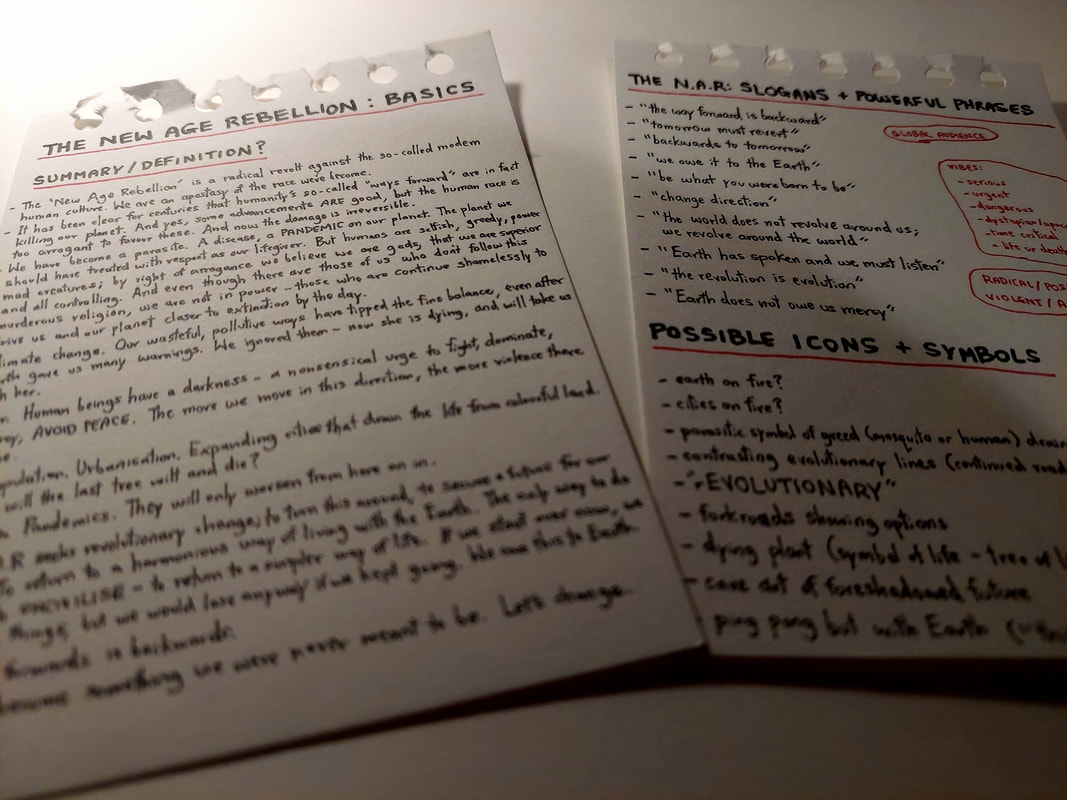 THE NEW AGE REBELLION : BASICS
SUMMARY/DEFINITION?
- The "New Age Rebellion" is a radical revolt against the so-called modern
human culture. We are an apostasy of the race we've become.
- It has been clear for centuries that humanity's so-called "ways forward" are in fact
killing our planet. And yes, some advancements ARE good, but the human race is
too arrogant to favour these. And now the damage is irreversible.
We have become a parasite. A disease, a PANDEMIC on our planet. The planet we
should have treated with respect as our lifegiver. But humans are selfish, greedy, power
mad creatures; by right of arrogance we believe we are gods, that we are superior
and all controlling. And even though there are those of us who don't follow this
murderous religion, we are not in power - those who are continue shamelessly to
drive us and our planet closer to extinction by the day.
climate change. Our wasteful, pollutive ways have tipped the fine balance, even after
gave us many warnings. We ignored them - now she is dying, and will take us
her.
Human beings have a darkness - a nonsensical urge to fight, dominate,
AVOID PEACE. The more we move in this direction, the more violence there
Urbanisation. Expanding cities that drain the life from colourful land.
will the last tree wilt and die?
Pandemics. They will only worsen from here on in.
R seeks revolutionary change; to turn this around, to secure a future for our
To return to a harmonious way of living with the Earth. The only way to do
UNCIVILISE - to return to a simpler way of life. If we start over now, we
things, but we would lose anyway if we kept going. We owe this to Earth.
forwards is backwards.
become something we were never meant to be. Let's change.
THE N.A.R: SLOGANS + POWERFUL PHRASES
- "the way forward is backward"
- "tomorrow must revert"
- "backwards to tomorrow"
- "we owe it to the Earth"
- "be what you were born to be"
- "change direction"
- "the world does not revolve around us;
we revolve around the world"
- "Earth has spoken and we must listen"
- "the revolution is evolution"
- "Earth does not owe us mercy"
GLOBAL AUDIENCE
VIBES:
- serious
- urgent
- dangerous
- dystopian
- time critical
- life or death
RADICAL/
VIOLENT/
POSSIBLE ICONS + SYMBOLS
- earth on fire?
- cities on fire?
- parasitic symbol of greed (mosquito or human)
- contrasting evolutionary lines (continued road
- "rEVOLUTIONARY"
- forkroads showing options
- dying plant (symbol of life - tree of
- cave art of foreshadowed future
- ping pong but with Earth